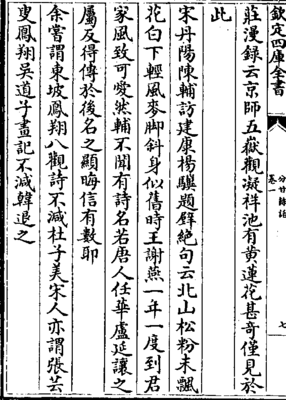 欽定四庫全書
卷一
分甘餘話
七
莊漫録云京師五嶽觀凝祥池有黄蓮花甚奇僅見於
此
宋丹陽陳輔訪建康楊驥題壁絶句云北山松粉未飄
花白下輕風麥脚斜身似舊時王謝燕一年一度到君
家風致可愛然輔不聞有詩名若唐人任華盧延讓之
屬反得傳於後名之顯晦信有數耶
余嘗謂東坡鳳翔八觀詩不減杜子美宋人亦謂張芸
叟鳳翔吴道子畫記不減韓退之